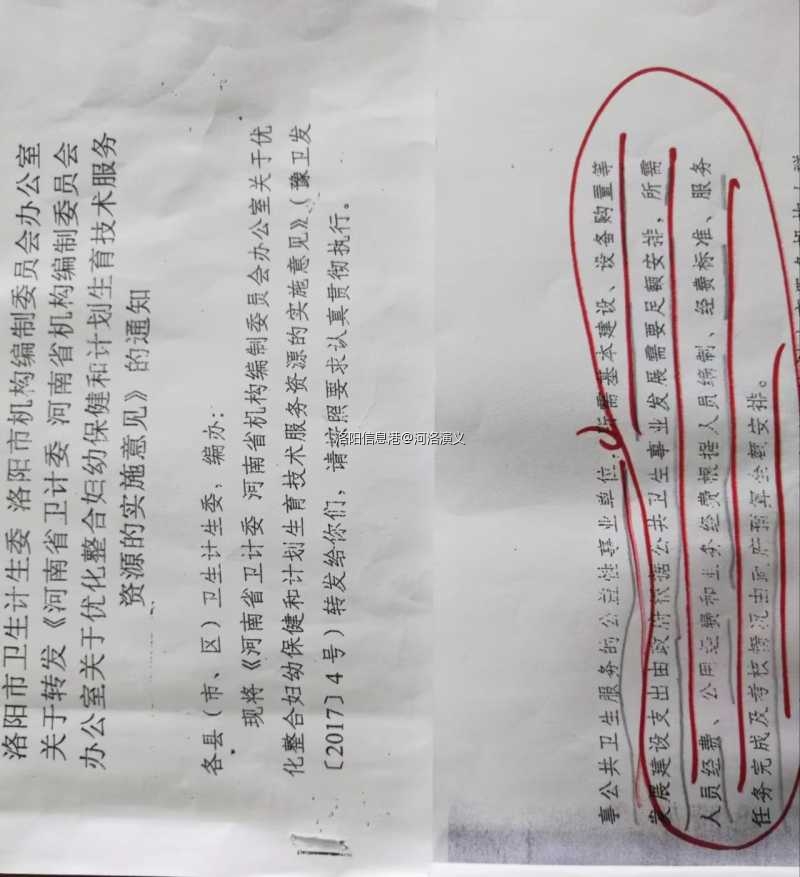 洛阳市卫生计生委 洛阳市机构编制委员会办公室
关于转发《河南省卫计委 河南省机构编制委员会
办公室关于优化整合妇幼保健和计划生育技术服务
资源的实施意见》的通知
各县（市、区）卫生计生委，编办：
现将《河南省卫计委 河南省机构编制委员会办公室关于优
化整合妇幼保健和计划生育技术服务资源的实施意见》（豫卫发
〔2017〕4号）转发给你们，请按照要求认真贯彻执行。
事公共卫生服务的公益性事业单位，所需基本建设、设备购置等
发展建设支出由政府依据公共卫生事业发展需要足额安排，所需
人员经费、公用经费和业务经费根据人员编制、经费标准、服务
任务完成及考核情况由政府预算全额安排。
洛阳信息港@河洛演义